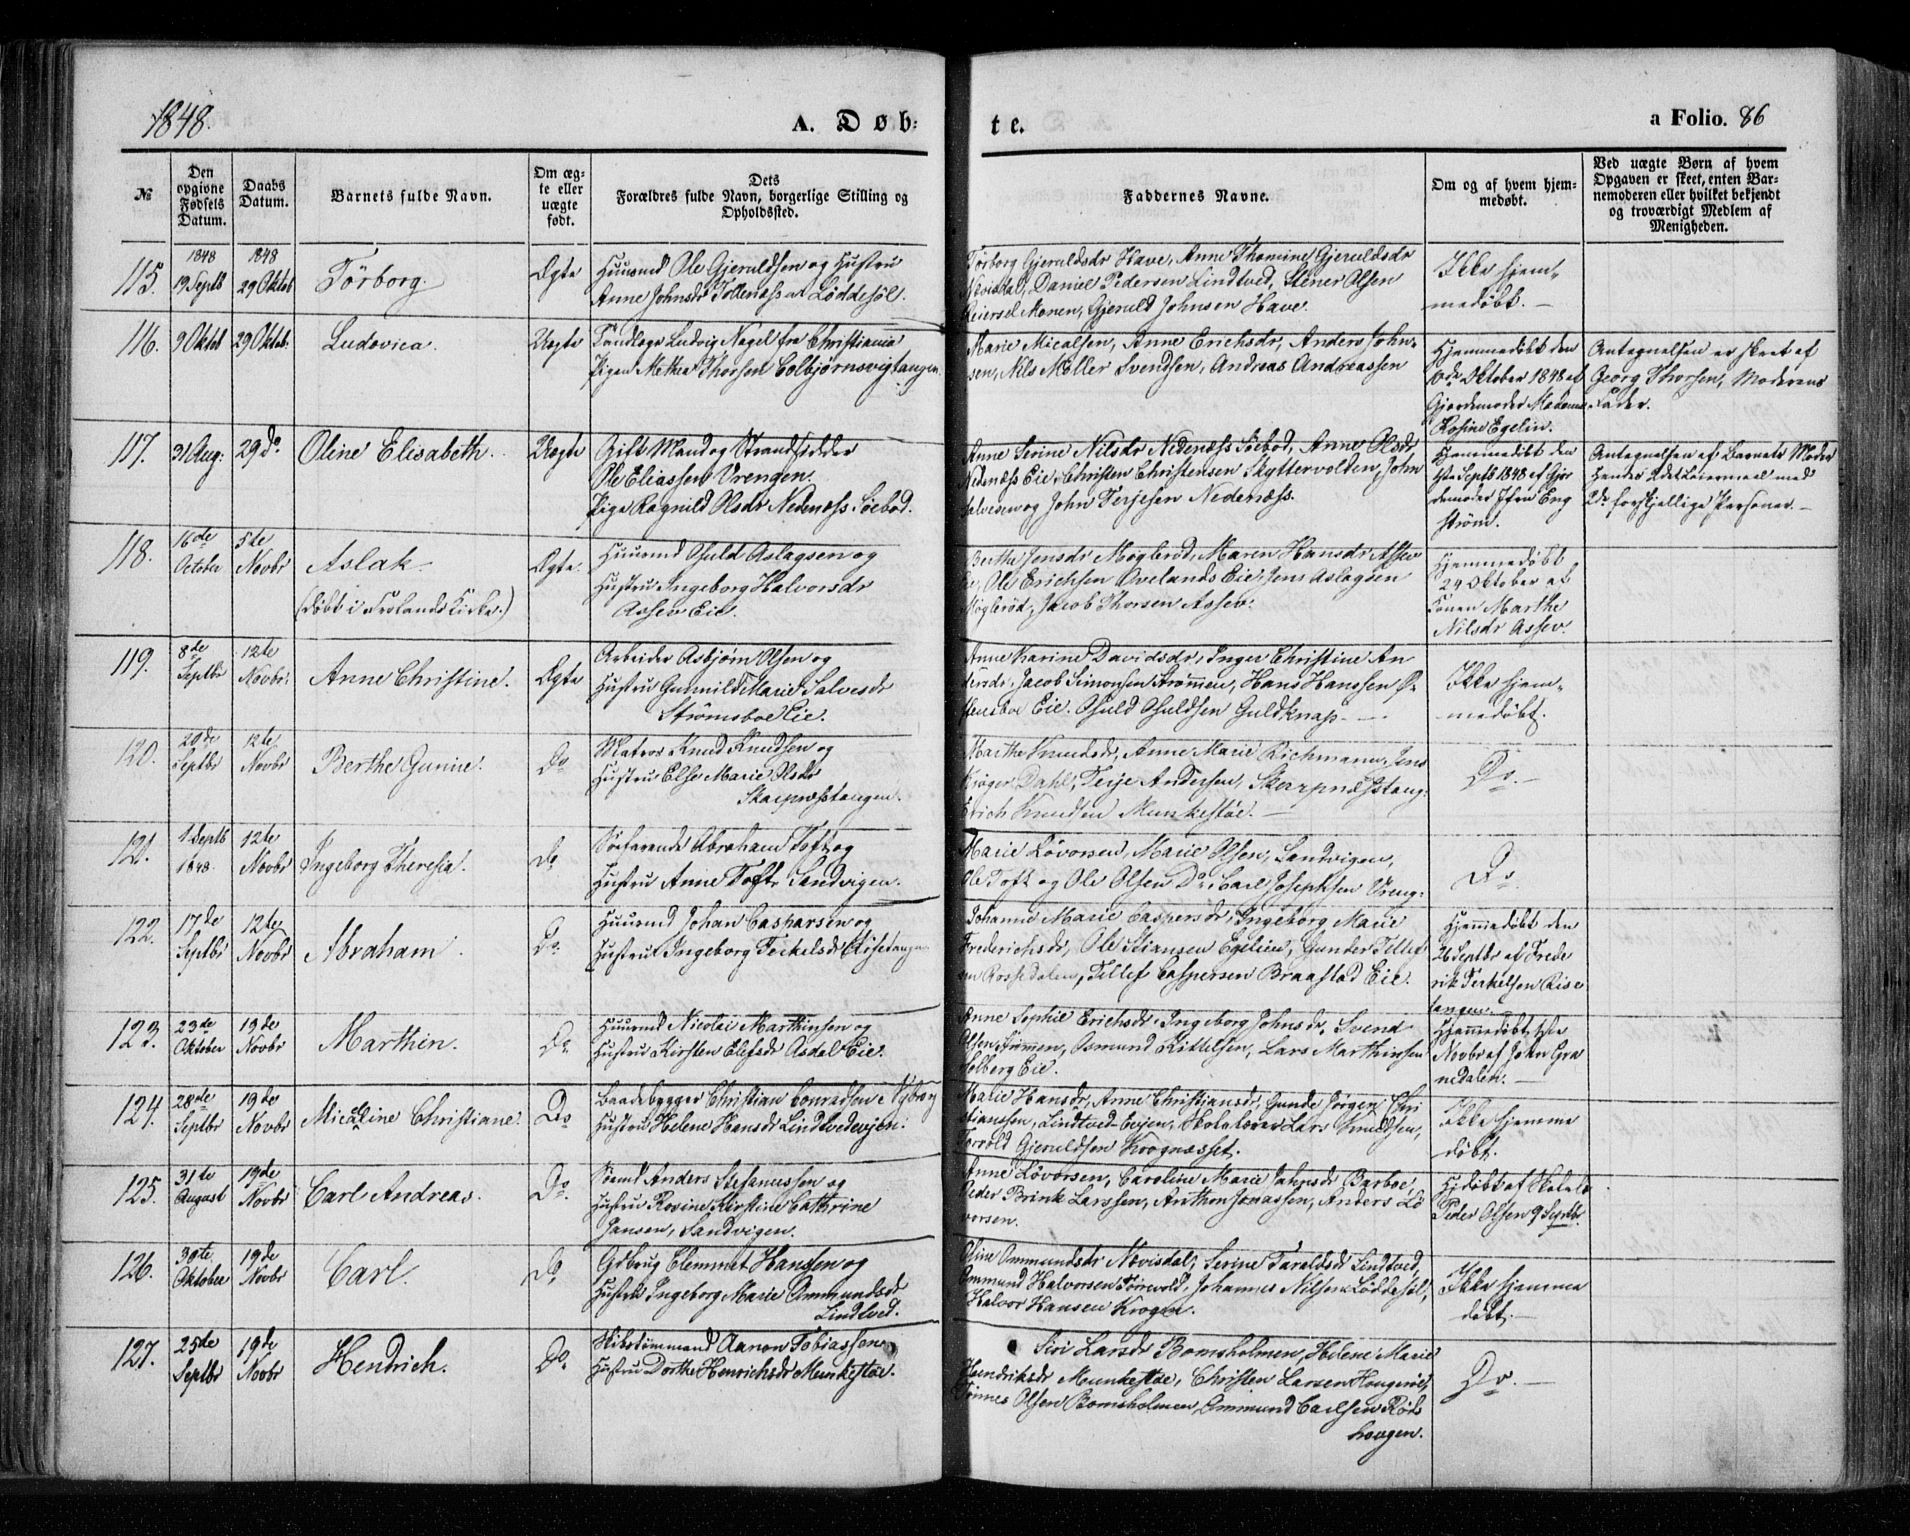 1848.
A. Døb-
te.
a Folio. 86
№
Den opgivne Fødsels Datum.
Daabs Datum.
Barnets fulde Navn.
Om ægte eller uægte født.
Dets Forældres fulde Navn, borgerlige Stilling og Opholdssted.
Faddernes Navne.
Om og af hvem hjemmedøbt.
Ved uægte Børn af hvem Opgaven er skeet, enten Barnemoderen eller hvilket bekjendt og troværdigt Medlem af Menigheden.
115.
1848
19 Septb
1848
29 Oktob
Törborg.
Ægte
Huusmd Ole Gjeruldsen og Hustru
Anne Johnsdr Løddesøl.
Törborg Gjeruldsdr Have, Anne Thomine Gjeruldsdr
Daniel Pedersen Lindtved, Stener Olsen
Monen, Gjeruld Johnsen Have.
Ikke hjem-
medøbt.
116.
9 Oktob
29 Oktob.
Ludovica.
Uægte
Tandlæge Ludvig Nagel fra Christiania
Pigen Mathea Thorsen Colbjørnsvigtangen
Marie Micalsen, Anne Erichsdr, Anders John-
sen, Nils Møller Svendsen, Andreas Andreassen
Hjemmedøbt den
10de Oktober 1848 af
Gjordemoder Madame
Rosine Egelin.
Antegnelsen er skeet af
Georg Thorsen, Moderens
Fader.
117.
31 Aug.
29 Do
Oline Elisabeth.
Uægte
Gift Mand og Strandsidder
Ole Eliassen Vrengen.
Pige Ragnild Olsdr Nedenæss Söebod.
Anne Serine Nilsdr Nedenæss Söebod, Anne Olsdr
Nedenæss Eie, Christen Christensen Skyttervolden, John
Salvesen og John Terjesen Nedenæss.
Hjemmedøbt den
Septb 1848 af Gjor
demoder Engström.
Antegnelsen af Barnets Moder
Hendes 2det Leiermaal med
2de forskjellige Personer.
118.
16de
October
5te
Novbr
Aslak
(døbt i Frolands Kirke.)
Ægte.
Huusmd Osuld Aslagsen og
Hustru Ingeborg Halvorsdr
Assev Eie.
Berthe Jensdr Møglerød, Maren Hansdr Assev
Ole Erichsen Ovelands Eie, Jens Aslagsen
Møglerød, Jacob Thorsen Assev.
Hjemmedøbt
24 Oktober af
Konen Marthe
Nilsdr Assev.
119.
8de
Septbr
12te
Novbr.
Anne Christine.
Ægte
Arbeider Asbjørn Olsen og
Hustru Gunnild Marie Salvesdr
Strömsboe Eie.
Anne Karine Davidsdr, Inger Christine An
dersdr, Jacob Simonsen Strømmen, Hans Hanssen Ø-
stensboe Eie. Osuld Osuldsen Guldknap.
Ikke hjem-
medøbt.
120.
20de
Septbr
12te
Novbr
Berthe Gunie.
Do
Matros Knud Knudsen og
Hustru Else Marie Olsdr
Skarpnæstangen.
Marthe Knudsdr, Anne Marie Richmann, Jens
Krøger Dahl, Terje Andersen, Skarpnæstang.
Erich Knudsen Munkestøe.
Do.
121.
1 Septb
1848.
12te
Novbr
Ingeborg Theresia.
Do
Søefarende Abraham Toft og
Hustru Anne Toft, Sandvigen.
Marie Løvorsen, Marie Olsen, Sandvigen,
Ole Toft og Ole Olsen Do, Carl Josephsen Vreng.
Do.
122.
17de
Septbr
12te
Novbr
Abraham.
Do.
Huusmd Johan Casparsen og
Hustru Ingeborg Terkelsdr Risetangen
Johanne Marie Caspersdr, Ingeborg Marie
Frederichsdr, Ole Stiansen Egelien, Gunder Tellef
sen Rossedalen, Tellef Caspersen Braastad Eie.
Hjemmedøbt den
26 Septbr af Frede
rik Terkelsen Rise
tangen
123.
23de
Oktober
19de
Novbr
Marthin.
Do.
Huusmd Nicolai Marthinsen og
Hustru Kirsten Elefsdr Asdal Eie.
Anne Sophie Erichsdr, Ingeborg Johnsdr, Svend
Olsen, Osmund Kittelsen, Lars Marthinsen
Solberg Eie.
Hjemmedøbt
Novbr af John Gra
nedalen.
124.
28de
Septbr
19de
Novbr
Micaeline Christiane.
Do
Baadebygger Christian Conradsen Nyborg
Hustru Helene Hansdr Lindtvedevjen.
Marie Hansdr, Anne Christiansdr, Gunde Jørgen Chri
stianssen, Lindtved-Evjen, Skolelærer Lars Knudsen,
Torvold Gjeruldsen Krognæsset.
Ikke hjemme
døbt.
125.
31te
August
19de
Novbr
Carl Andreas.
Do.
Søemd Anders Stefanussen og
Hustru Rosine Kirstine Cathrine
Jansen, Sandvigen.
Anne Løvorsen, Caroline Marie Jahnsdr Barboe,
Peder Brink Larssen, Anthon Jonassen, Anders Lö
vorsen.
Hjdøbt af Skolel
Peder Olsen 9 Septbr.
126.
30te
Oktober
19de
Novbr
Carl.
Do
Gdbrug Clemmet Hansen og
Hustru Ingeborg Marie Ommundsdr
Lindtved.
Oline Ommundsdr Novisdal, Serine Taraldsdr Lindtved,
Ommund Halvorsen Törrevold, Johannes Nilsen Løddesøl,
Halvor Hansen Krogen.
Ikke hjemme
døbt.
127.
25de
Septbr
19de
Novbr
Hendrich.
Do.
Skibstömmermand Aanon Tobiassen
Hustru Dorthe Henrichsdr Munkestøe.
Siri Larsdr Bomsholmen, Helene Marie
Hendriksdr Munkestøe, Christen Larsen Hougerød,
Tönnes Olsen Bomsholmen, Ommund Carlsen Röds
hougen.
Do.